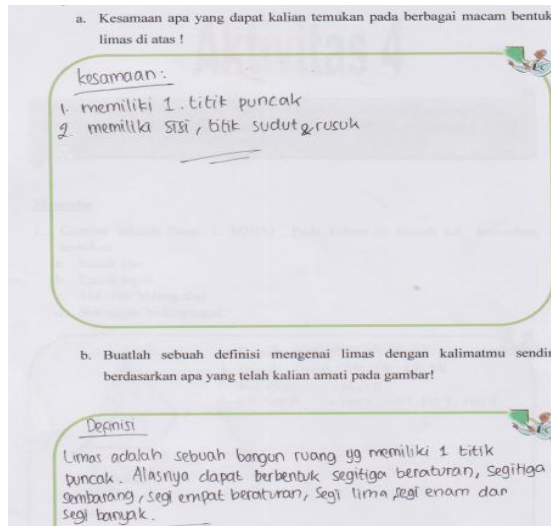 a. Kesamaan apa yang dapat kalian temukan pada berbagai macam bentuk
limas di atas !
kesamaan :
1. memiliki 1 . titik puncak
2. memiliki sisi , titik sudut & rusuk
b. Buatlah sebuah definisi mengenai limas dengan kalimatmu sendir
berdasarkan apa yang telah kalian amati pada gambar!
Definisi
Limas adalah sebuah bangun ruang yg memiliki 1 titik
puncak. Alasnya dapat berbentuk segitiga beraturan, segitiga
sembarang, segi empat beraturan, segi lima, segi enam dan
segi banyak.